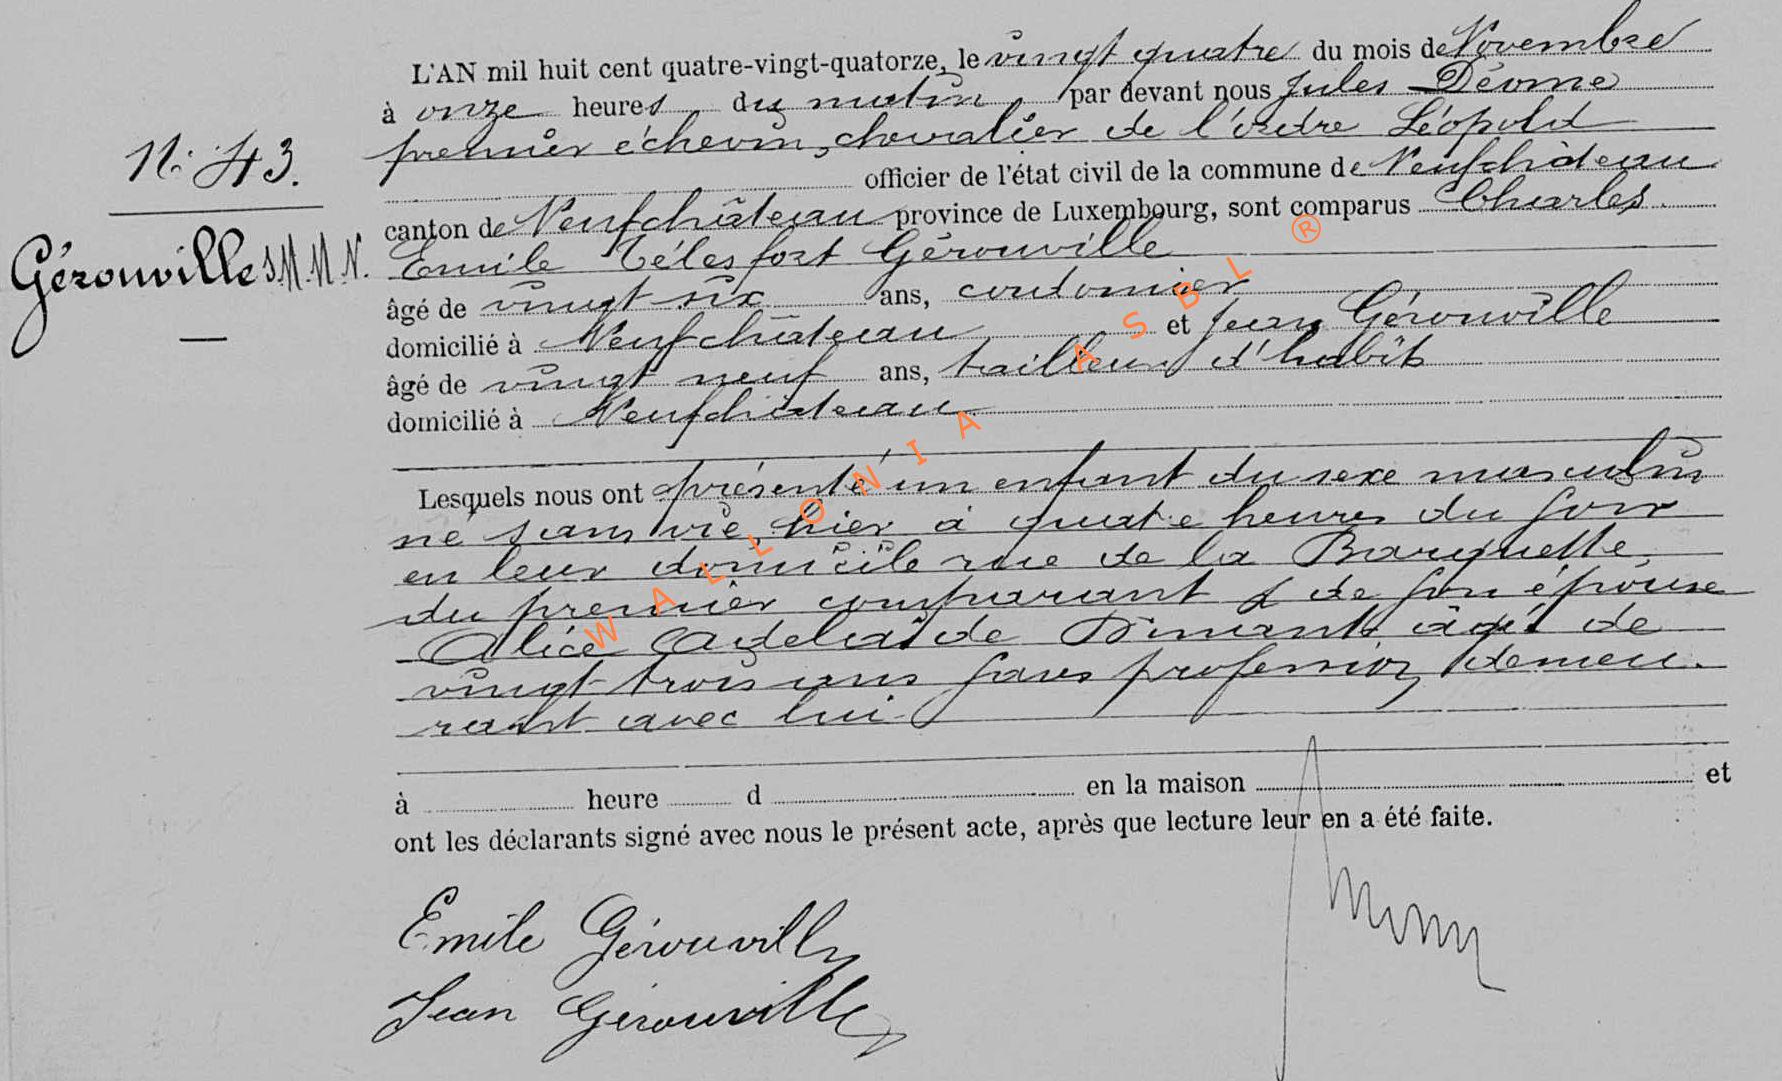 L'AN mil huit cent quatre-vingt-quatorze, le vingt quatre du mois de Novembre
à onze heures du matin, par devant nous Jules Déome
N° 43.
premier échevin, chevalier de l'ordre Léopold
officier de l'état civil de la commune de Neufchâteau
canton de Neufchâteau province de Luxembourg, sont comparus Charles
Gérouville S.M.M.N.
Emile Télesfort Gérouville
âgé de vingt six ans, cordonnier
domicilié à Neufchâteau et Jean Gérouville
âgé de vingt neuf ans, tailleur d'habits
domicilié à Neufchâteau
Lesquels nous ont présenté un enfant du sexe masculin
né sans vie, hier à quatre heures du soir
en leur domicile rue de la Barquette,
du premier comparant & de son épouse
Alice Adelaïde Dinant âgée de
vingt trois ans sans profession, demeu-
rant avec lui
à heure d en la maison et
ont les déclarants signé avec nous le présent acte, après que lecture leur en a été faite.
Emile Gérouville
Jean Gérouville
WALLONIA ASBL ®